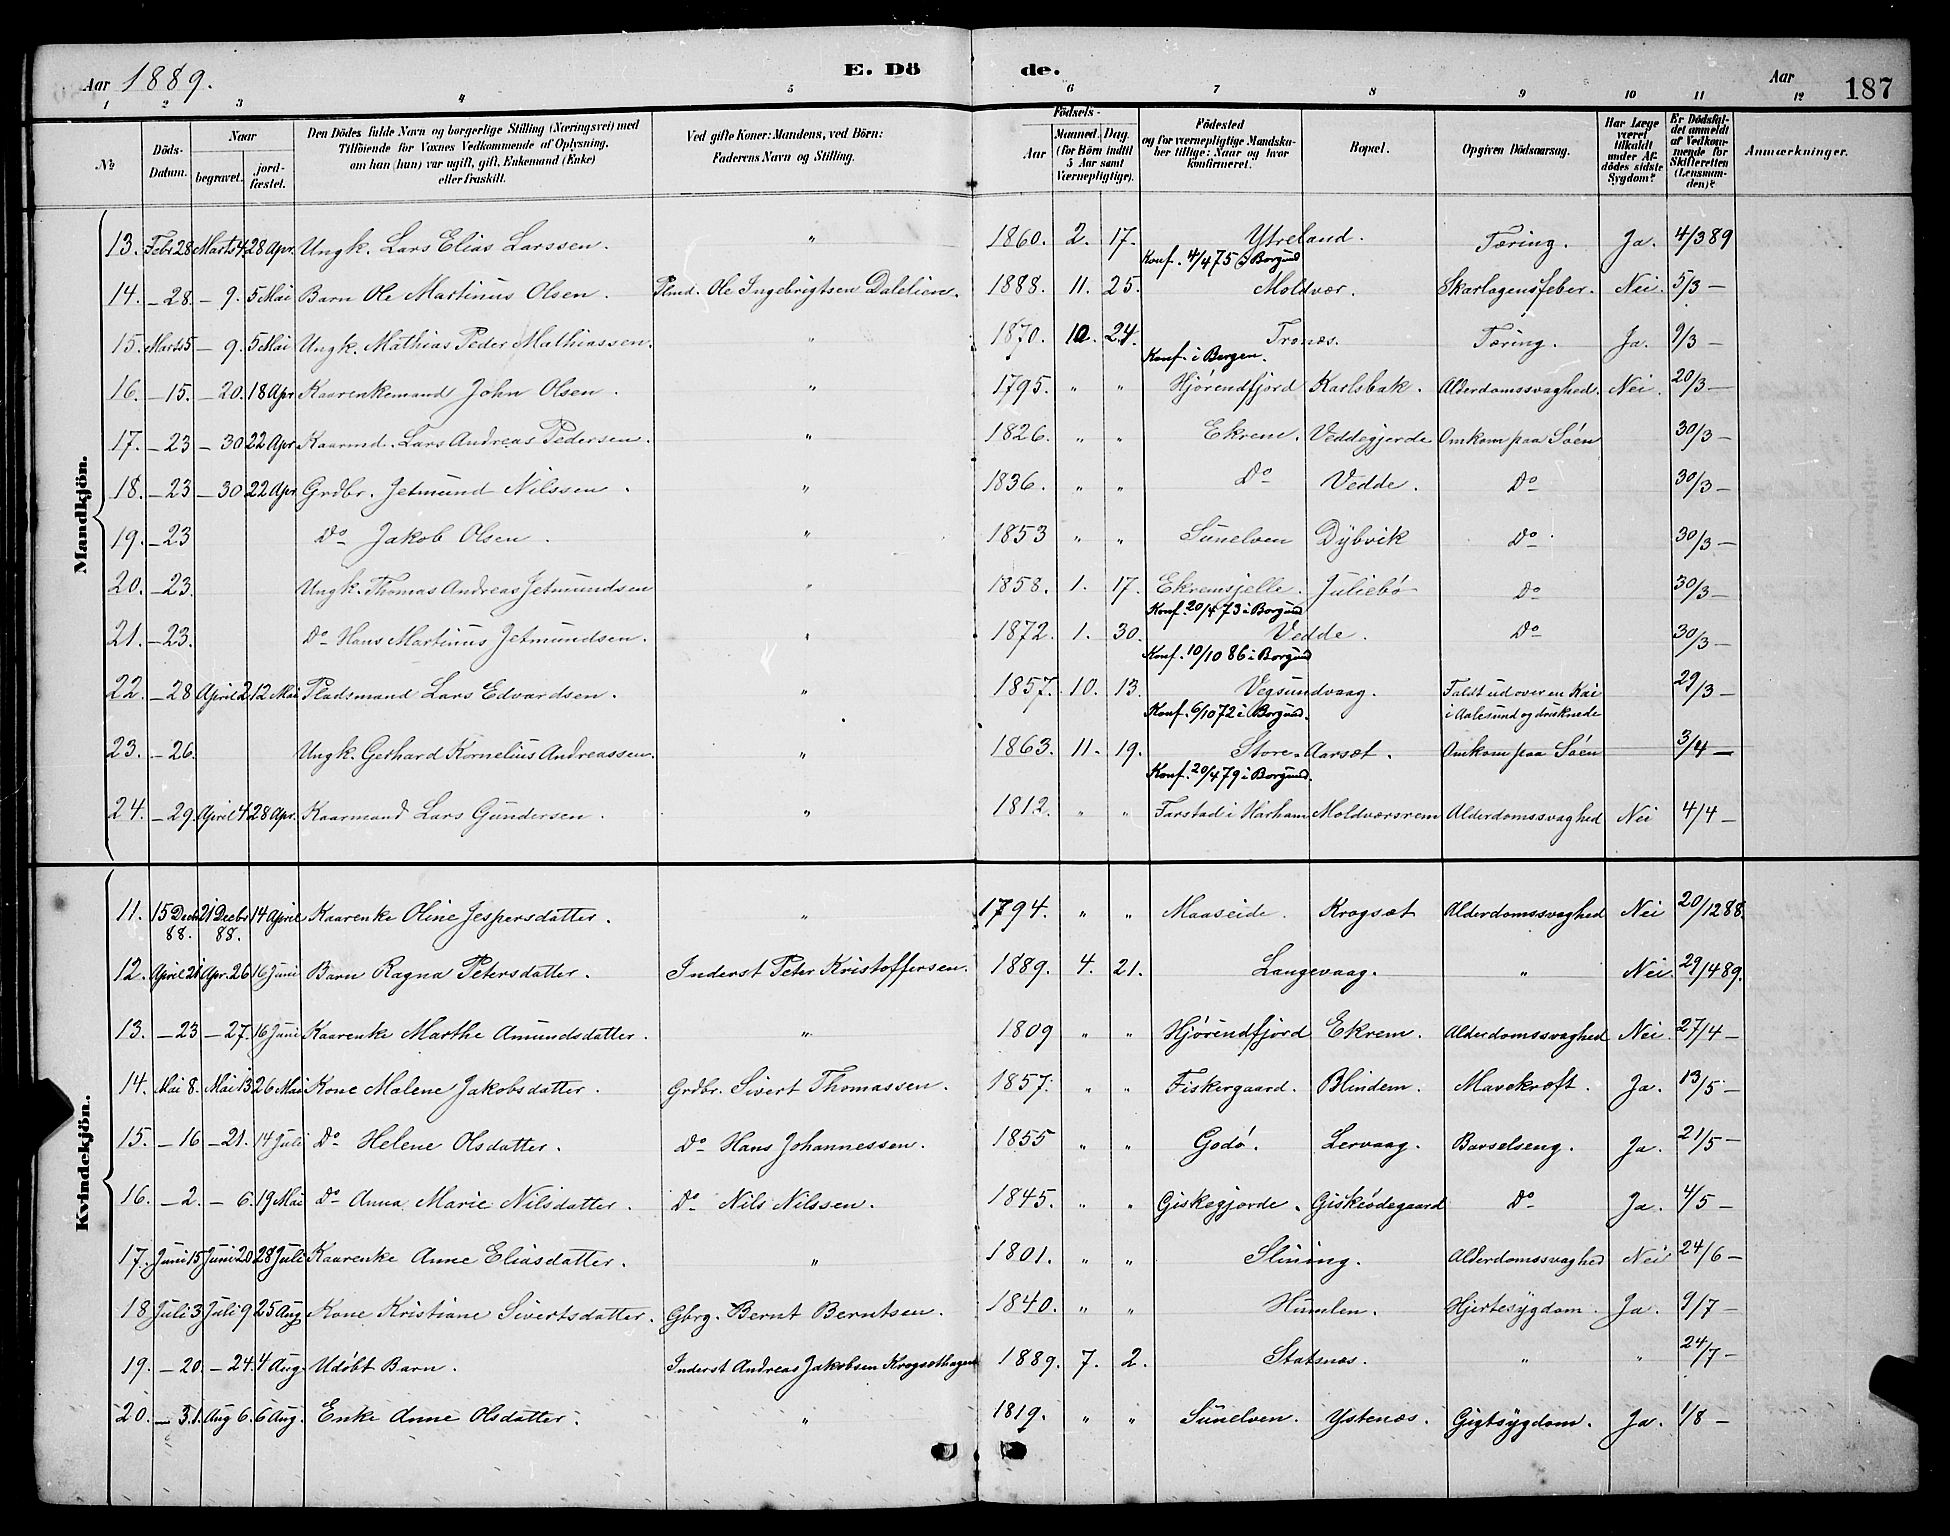 Aar 1889. E. Dö de. Aar 187
1 2 3 4 5 6 7 8 9 10 11 12
№
Döds-Datum.
Naar
begravet.
jord-fæstet.
Den Dödes fulde Navn og borgerlige Stilling (Næringsvei) med
Tilföiende for Voxnes Vedkommende af Oplysning,
om han (hun) var ugift, gift, Enkemand (Enke)
eller fraskilt.
Ved gifte Koner: Mandens, ved Börn:
Faderens Navn og Stilling.
Födsels-
Aar
Maaned. Dag.
(for Börn indtil
5 Aar samt
Værnepligtige).
Födested
og for værnepligtige Mandska-
ber tillige: Naar og hvor
konfirmeret.
Bopæl.
Opgiven Dödsaarsag.
Har Læge
været
tilkaldt
under Af-
dödes sidste
Sygdom?
Er Dödsfal-
det anmeldt
af Vedkom-
mende for
Skifteretten
(Lensman-
den)?
Anmærkninger.
Mandkjön.
13. Febr 28 Marts 4 28 Apr. Ungk. Lars Elias Larssen. " 1860. 2. 17. Ytreland. Tæring. Ja. 4/3 89
Konf. 4/4 75 i Borgund
14. — 28. — 9. 5 Mai Barn Ole Martinus Olsen. Plmd. Ole Ingebrigtsen Dalelien. 1888. 11. 25. Moldvær. Skarlagensfeber. Nei. 5/3 —
15. Marts 5 — 9. 5 Mai Ungk. Mathias Peder Mathiassen. " 1870. 10. 24. Tronæs. Tæring. Ja. 9/3 —
Konf. i Bergen.
16. — 15. — 20. 18 Apr Kaarenkemand John Olsen. " 1795. " " Hjørendfjord Karlsbak. Alderdomssvaghed. Nei. 20/3 —
17. — 23 — 30 22 Apr Kaarmd. Lars Andreas Pedersen. " 1826. " " Ekrem. Veddegjerde Omkom paa Søen 30/3 —
18. — 23 — 30 22 Apr Grdbr. Jetmund Nilssen. " 1836. " " Do Vedde. Do 30/3 —
19. — 23 Do Jakob Olsen. " 1853 " " Sunelven Dybvik Do 30/3 —
20. — 23. Ungk. Thomas Andreas Jetmundsen " 1858. 1. 17. Ekremsjelle. Juliebø Do 30/3 —
Konf. 20/4 73 i Borgund
21. — 23. Do Hans Martinus Jetmundsen. " 1872. 1. 30. Vedde. Do 30/3 —
Konf. 10/10 86 i Borgund
22. — 28 April 2 12 Mai Pladsmand Lars Edvardsen. " 1857. 10. 13. Vegsundvaag. Faldt ud over en Kai 29/3 —
Konf. 6/10 72 i Borgund. i Aalesund og druknede
23. — 26. Ungk. Gerhard Kornelius Andreassen. " 1863. 11. 19. Store-Aarsæt. Omkom paa Søen 3/4 —
Konf. 20/4 79 i Borgund.
24. — 29. April 4 28 Apr. Kaarmand Lars Gundersen. " 1812. " " Farstad i Harham Moldværsrem Alderdomssvaghed Nei 4/4 —
Kvindekjön.
11. 15 Decbr 21 Decbr 14 April Kaarenke Oline Jespersdatter. " 1794. " " Maaseide. Krogsæt Alderdomssvaghed Nei 20/12 88.
88. 88.
12. April 21 Apr. 26 16 Juni Barn Ragna Petersdatter. Inderst Peter Kristoffersen. 1889. 4. 21. Langevaag. " Nei. 29/4 89.
13. — 23 — 27. 16 Juni Kaarenke Marthe Amundsdatter. " 1809 " " Hjørendfjord Ekrem. Alderdomssvaghed Nei. 27/4 —
14. Mai 8. Mai 13 26 Mai Kone Malene Jakobsdatter. Grdbr. Sivert Thomassen. 1857. " " Fiskergaard. Blindem. Mavekræft. Ja. 13/5 —
15. — 16 — 21. 14 Juli Do Helene Olsdatter. Do Hans Johannessen. 1855 " " Godø Lervaag. Barselseng. Ja. 21/5 —
16. — 2. — 6. 19 Mai Do Anna Marie Nilsdatter. Do Nils Nilssen. 1845. " " Giskegjorde. Giskeødegaard Do Ja. 4/5 —
17. Juni 15 Juni 20 28 Juli Kaarenke Anne Eliasdatter. " 1801. " " Slining. Alderdomssvaghed Nei 24/6 —
18 Juli 3 Juli 9 25 Aug Kone Kristiane Sivertsdatter. Gbrg. Bernt Berntsen. 1840. " " Humlen. Hjertesygdom. Ja. 9/7 —
19. — 20. — 24. 4 Aug. Udøbt Barn. Inderst Andreas Jakobsen Krogsethagen 1889. 7. 2. Statsnæs. " " 24/7 —
20. — 31. Aug 6. 6 Aug. Enke Anne Olsdatter. " 1819. " " Sunelven. Ystenæs. Gigtsygdom. Ja. 1/8 —